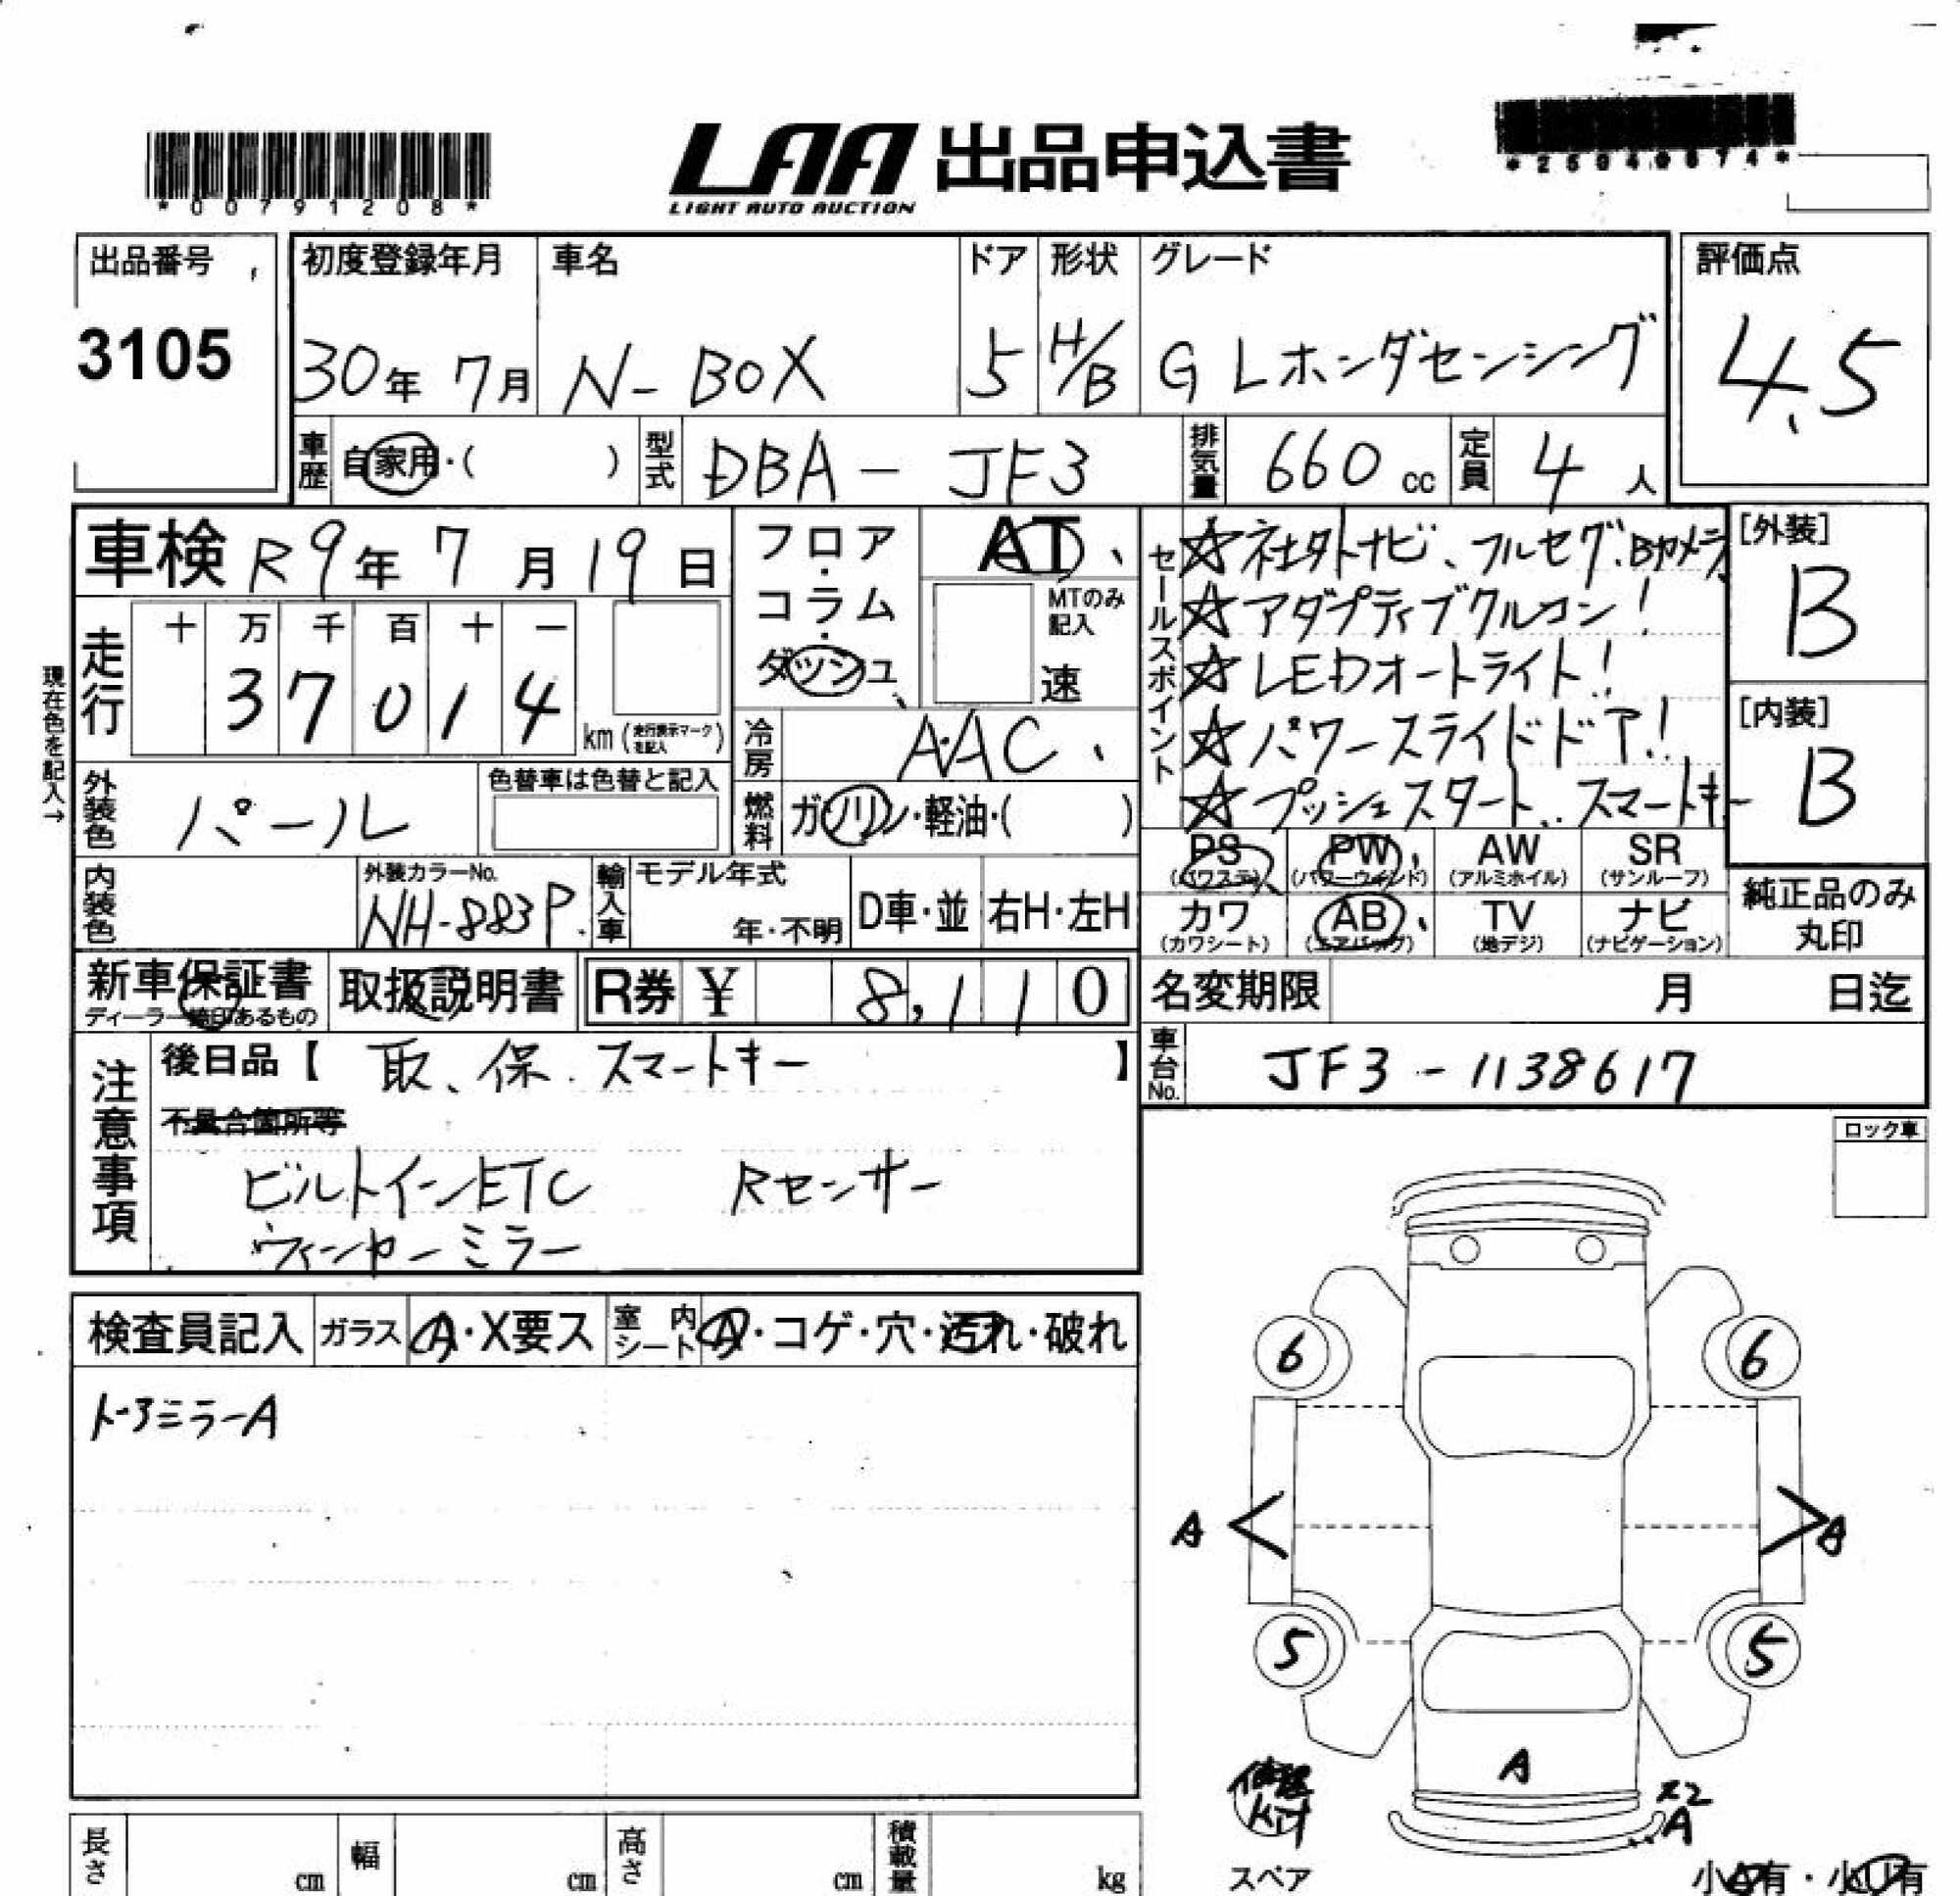 *00791208*
LAA 出品申込書
LIGHT AUTO AUCTION
*25940674*
出品番号
3105
初度登録年月
30年 7月
車名
N-BOX
ドア
5
形状
H/B
グレード
G Lホンダセンシング
評価点
4.5
車歴 自家用・( )
型式 DBA-JF3
排気量 660cc
定員 4人
車検 R9年7月19日
フロア・コラム・ダッシュ
AT
MTのみ記入
速
走行 十万千百十一
37014
km (走行表示マークを記入)
現在色を記入→
冷房 AAC
燃料 ガソリン・軽油・( )
セールスポイント
☆社外ナビ、フルセグ、Bカメラ
☆アダプティブクルコン!
☆LEDオートライト!
☆パワースライドドア!
☆プッシュスタート、スマートキー
[外装]
B
[内装]
B
外装色 パール
色替車は色替と記入
内装色
外装カラーNo.
NH-883P
輸入車
モデル年式
年・不明
D車・並
右H・左H
PS (パワステ)
PW (パワーウィンド)
AW (アルミホイル)
SR (サンルーフ)
カワ (カワシート)
AB (エアバッグ)
TV (地デジ)
ナビ (ナビゲーション)
純正品のみ丸印
新車保証書
取扱説明書
R券 ¥ 8,110
名変期限 月 日迄
車台No. JF3-1138617
注意事項
後日品【 取、保、スマートキー 】
不具合箇所等
ビルトインETC Rセンサー
ウィンカーミラー
ロック車
検査員記入
ガラス A・X要ス
室内シート A・コゲ・穴・汚れ・破れ
ドアミラーA
6 6
A A
5 5
A
X2
A
修理
kit
スペア
長さ cm
幅 cm
高さ cm
積載量 kg
小A有・小U有